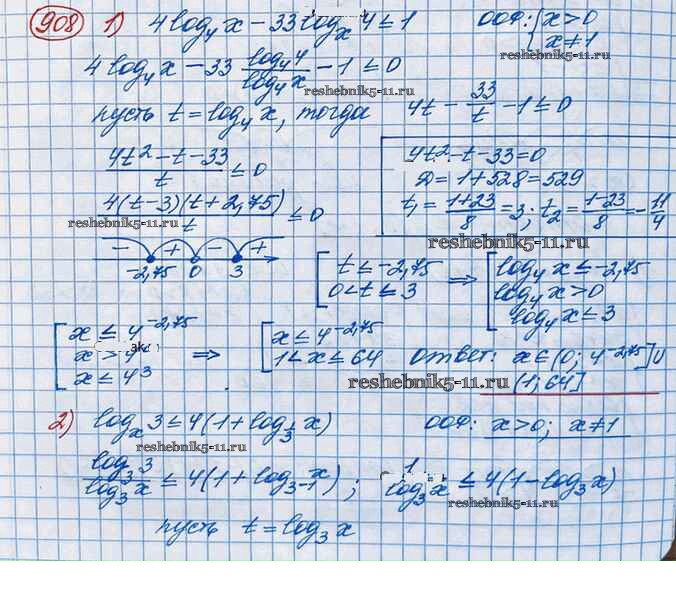 908 1) 4log₄x − 33logₓ4 ≤ 1    ООФ: { x > 0
x ≠ 1
4log₄x − 33 log₄4/log₄x − 1 ≤ 0
reshebnik5-11.ru
reshebnik5-11.ru
пусть t = log₄x, тогда    4t − 33/t − 1 ≤ 0
(4t² − t − 33)/t ≤ 0    4t² − t − 33 = 0
Д = 1 + 528 = 529
4(t−3)(t+2,75)/t ≤ 0    t₁ = (1+23)/8 = 3; t₂ = (1−23)/8 = −11/4
reshebnik5-11.ru
reshebnik5-11.ru
− + − +
−2,75 0 3    [ t ≤ −2,75 ⇒ [ log₄x ≤ −2,75
0 < t ≤ 3    log₄x > 0
log₄x ≤ 3
[ x ≤ 4^(−2,75) ⇒ [ x ≤ 4^(−2,75)
x > 4    1 < x ≤ 64    ответ: x ∈ (0; 4^(−2,75)] ∪
x ≤ 4³    (1; 64]
reshebnik5-11.ru
2) logₓ3 ≤ 4(1 + log_(1/3) x)    ООФ: x > 0; x ≠ 1
reshebnik5-11.ru
log₃3/log₃x ≤ 4(1 + log_(3⁻¹) x); 1/log₃x ≤ 4(1 − log₃x)
reshebnik5-11.ru
пусть t = log₃x